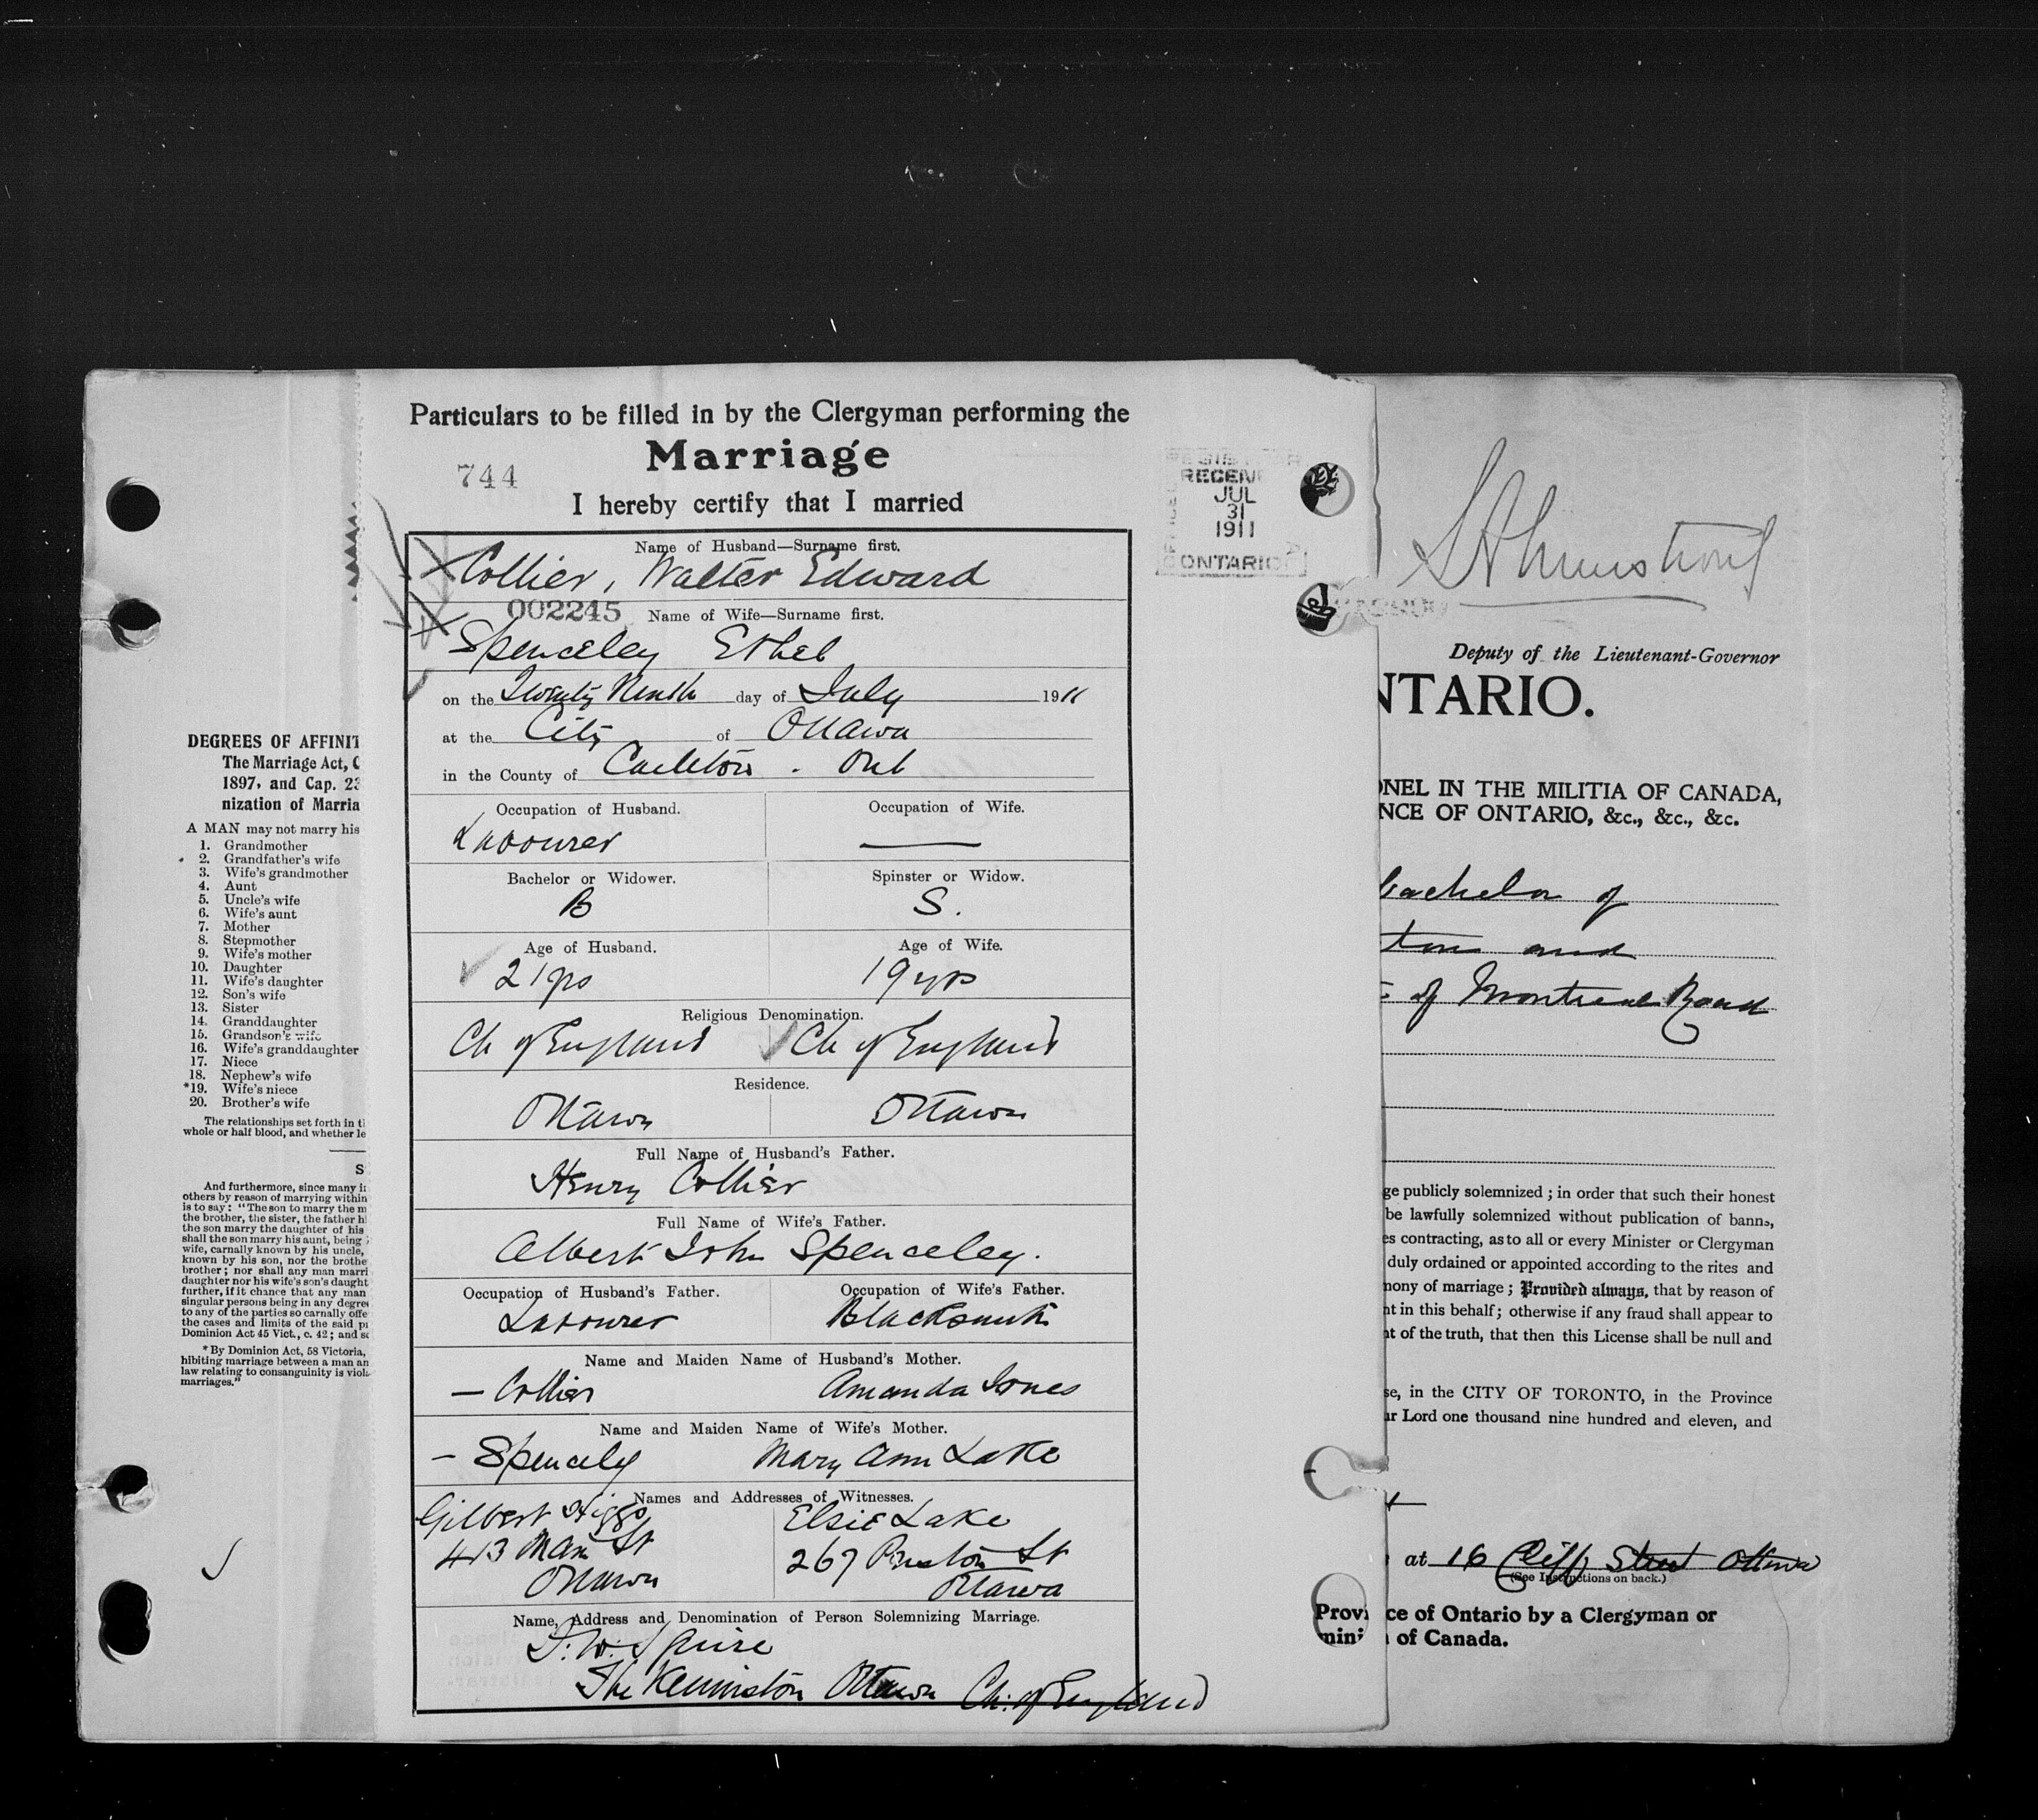 Particulars to be filled in by the Clergyman performing the
Marriage
744
I hereby certify that I married
RECEIV
JUL
31
1911
ONTARIO
Name of Husband—Surname first.
Collier, Walter Edward
002245
Name of Wife—Surname first.
Spenceley Ethel
on the Twenty Ninth day of July 1911
at the City of Ottawa
in the County of Carleton . Ont
Occupation of Husband. Occupation of Wife.
Labourer —
Bachelor or Widower. Spinster or Widow.
B S.
Age of Husband. Age of Wife.
21 yrs 19 yrs
Religious Denomination.
Ch of England Ch of England
Residence.
Ottawa Ottawa
Full Name of Husband's Father.
Henry Collier
Full Name of Wife's Father.
Albert John Spenceley.
Occupation of Husband's Father. Occupation of Wife's Father.
Labourer Blacksmith
Name and Maiden Name of Husband's Mother.
— Collier Amanda Jones
Name and Maiden Name of Wife's Mother.
— Spencely Mary Ann Lake
Names and Addresses of Witnesses.
Gilbert Higgs Elsie Lake
413 Main St 267 Preston St
Ottawa Ottawa
Name, Address and Denomination of Person Solemnizing Marriage.
Squire
The Kenniston Ottawa Ch. of England
DEGREES OF AFFINIT
The Marriage Act, C
1897, and Cap. 23
nization of Marria
A MAN may not marry his
1. Grandmother
2. Grandfather's wife
3. Wife's grandmother
4. Aunt
5. Uncle's wife
6. Wife's aunt
7. Mother
8. Stepmother
9. Wife's mother
10. Daughter
11. Wife's daughter
12. Son's wife
13. Sister
14. Granddaughter
15. Grandson's wife
16. Wife's granddaughter
17. Niece
18. Nephew's wife
*19. Wife's niece
20. Brother's wife
The relationships set forth in t
whole or half blood, and whether le
S
And furthermore, since many i
others by reason of marrying within
is to say: "The son to marry the m
the brother, the sister, the father h
the son marry the daughter of his
shall the son marry his aunt, being
wife, carnally known by his uncle,
known by his son, nor the brothe
brother; nor shall any man marri
daughter nor his wife's son's daught
further, if it chance that any man
singular persons being in any degree
to any of the parties so carnally offe
the cases and limits of the said p
Dominion Act 45 Vict., c. 42; and s
* By Dominion Act, 58 Victoria,
hibiting marriage between a man an
law relating to consanguinity is viol
marriages."
Deputy of the Lieutenant-Governor
NTARIO.
ONEL IN THE MILITIA OF CANADA,
NCE OF ONTARIO, &c., &c., &c.
bachelor of
ton and
of Montreal Road
ge publicly solemnized; in order that such their honest
be lawfully solemnized without publication of banns,
es contracting, as to all or every Minister or Clergyman
duly ordained or appointed according to the rites and
mony of marriage; Provided always, that by reason of
nt in this behalf; otherwise if any fraud shall appear to
nt of the truth, that then this License shall be null and
se, in the CITY OF TORONTO, in the Province
ur Lord one thousand nine hundred and eleven, and
at 16 Cliff Street Ottawa
(See Instructions on back.)
Provi ce of Ontario by a Clergyman or
mini of Canada.